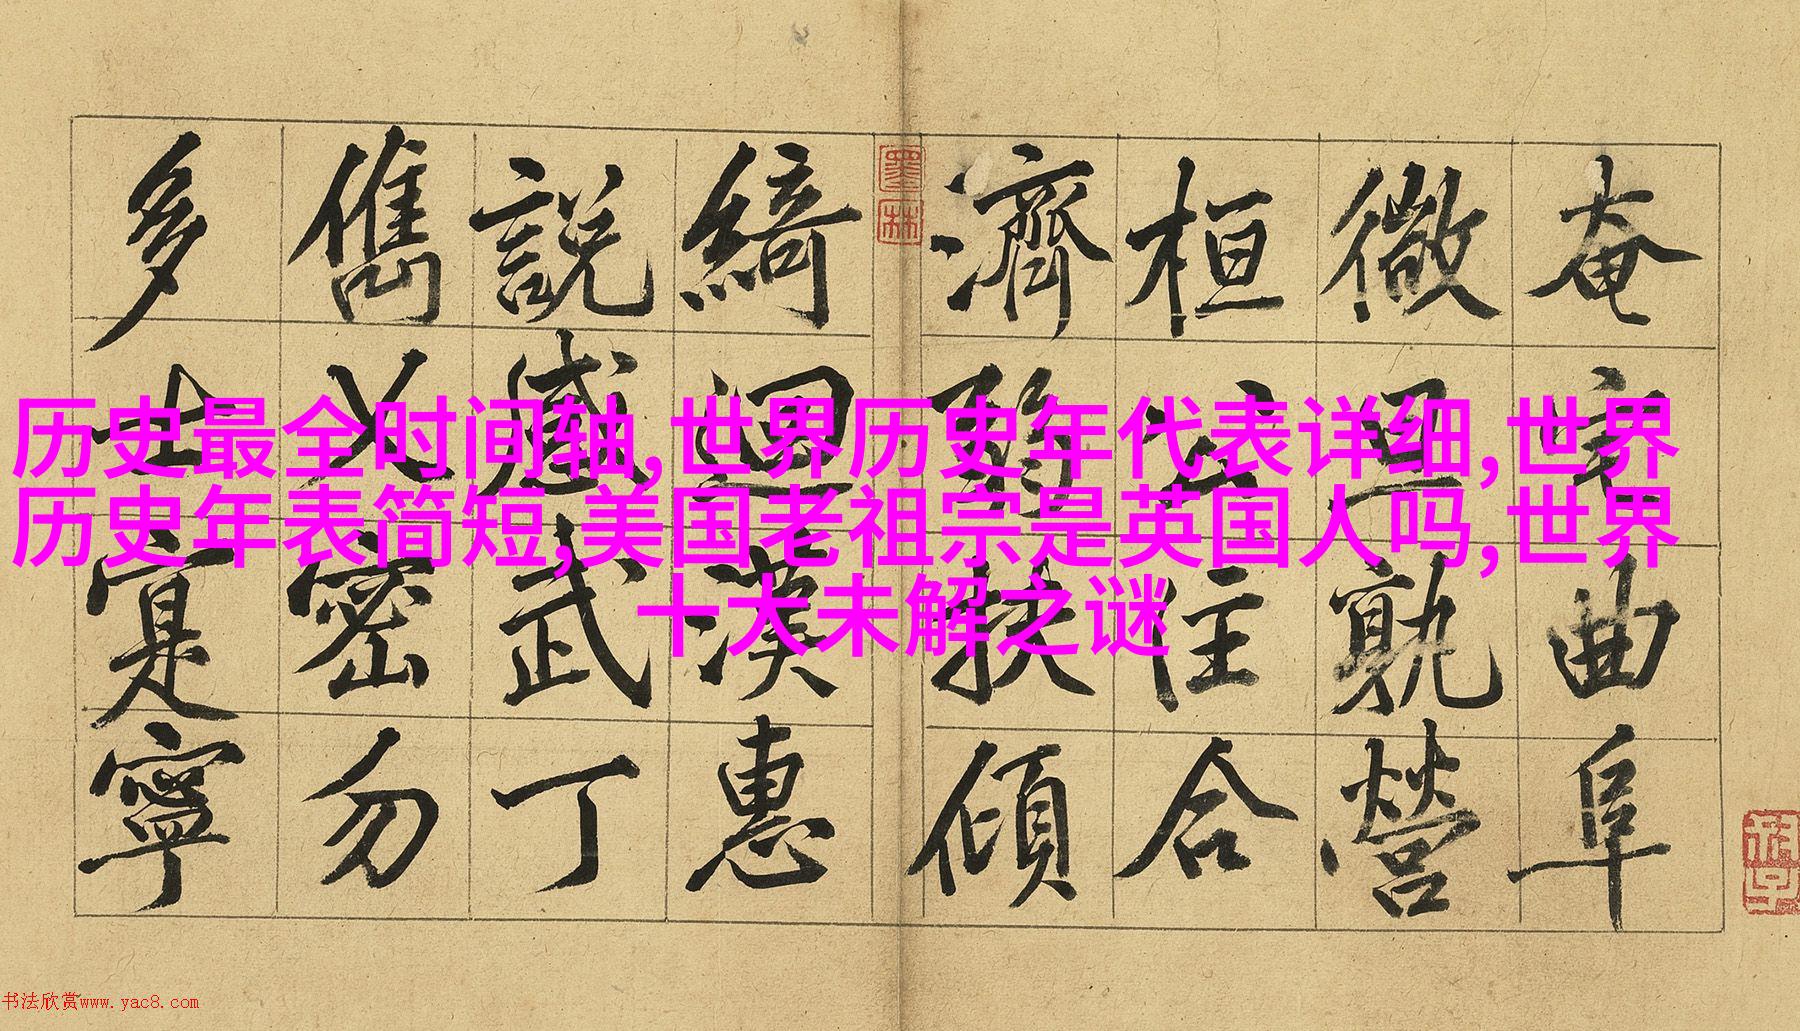 奄宅曲阜
微旦孰營
桓公合
濟弱扶傾
綺迴漢惠
說感武丁
儁乂密勿
多士寔寧
墨林
历史最全时间轴,世界历史年代表详细,世界
历史年表简短,美国老祖宗是英国人吗,世界
十大未解之谜
书法欣赏www.yac8.com